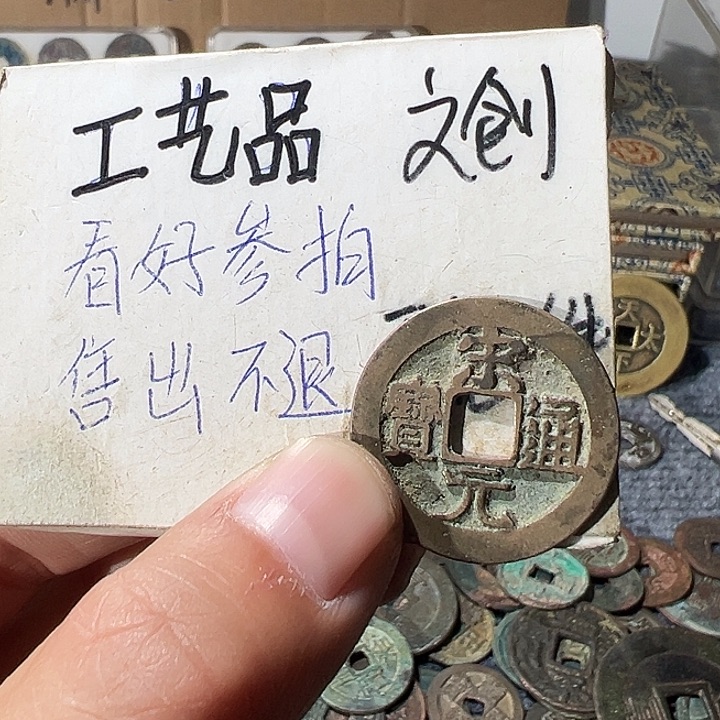 工艺品 文创
看好参拍
售出不退
宋元通寳
天下